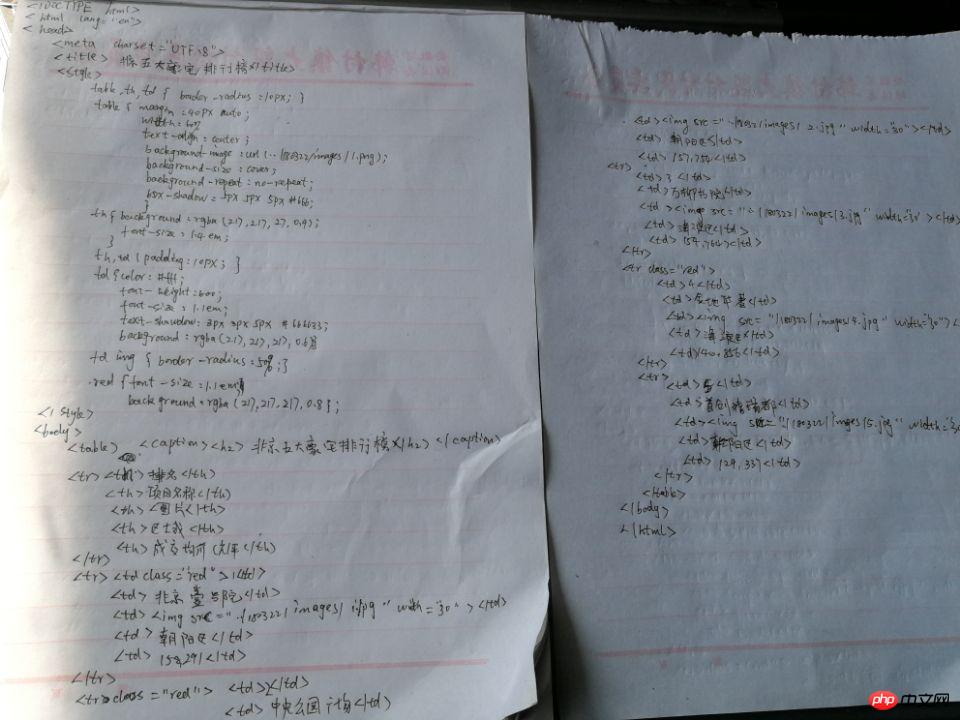 <!DOCTYPE html>
<html lang="en">
<head>
<meta charset="UTF-8">
<title>北京五大豪宅排行榜</title>
<style>
table,th,td { border-radius:10px; }
table { margin:40px auto;
width:60%
text-align:center;
background-image:url(../180322/images/1.png);
background-size:cover;
background-repeat:no-repeat;
box-shadow:5px 5px 5px #666;
}
th { background:rgba(217,217,27,0.9);
font-size:1.4em;
}
th,td { padding:10px; }
td { color:#fff;
font-weight:600;
font-size:1.1em;
text-shadow:2px 2px 5px
background:rgba(217,217,217,0.6)
td img { border-radius:50%; }
.red { font-size:1.1em;
background:rgba(217,217,217,0.8);
</style>
<body>
<table> <caption><h2>北京五大豪宅排行榜</h2></caption>
<tr> <th>排名</th>
<th>项目名称</th>
<th>图片</th>
<th></th>
<th>成交均价</th>
</tr>
<tr> <td class="red">1</td>
<td>北京壹号院</td>
<td><img src="../180322/images/1.jpg" width="30"></td>
<td>朝阳区</td>
<td></td>
</tr>
<tr class="red"> <td>2</td>
<td>中央公园</td>
<td><img src="../180322/images/2.jpg" width="30"></td>
<td>朝阳区</td>
<td>157,750</td>
<tr>
<td>3</td>
<td>万柳书院</td>
<td><img src="../180322/images/3.jpg" width="30"></td>
<td>海淀区</td>
<td>154,764</td>
</tr>
<tr class="red">
<td>4</td>
<td></td>
<td><img src="/180322/images/4.jpg" width="30"><
<td>海淀区</td>
<td>140,856</td>
</tr>
<tr>
<td></td>
<td>首创</td>
<td><img src="/180322/images/5.jpg" width="30
<td>朝阳区</td>
<td>129,337</td>
</tr>
</table>
</body>
</html>
php 中文网